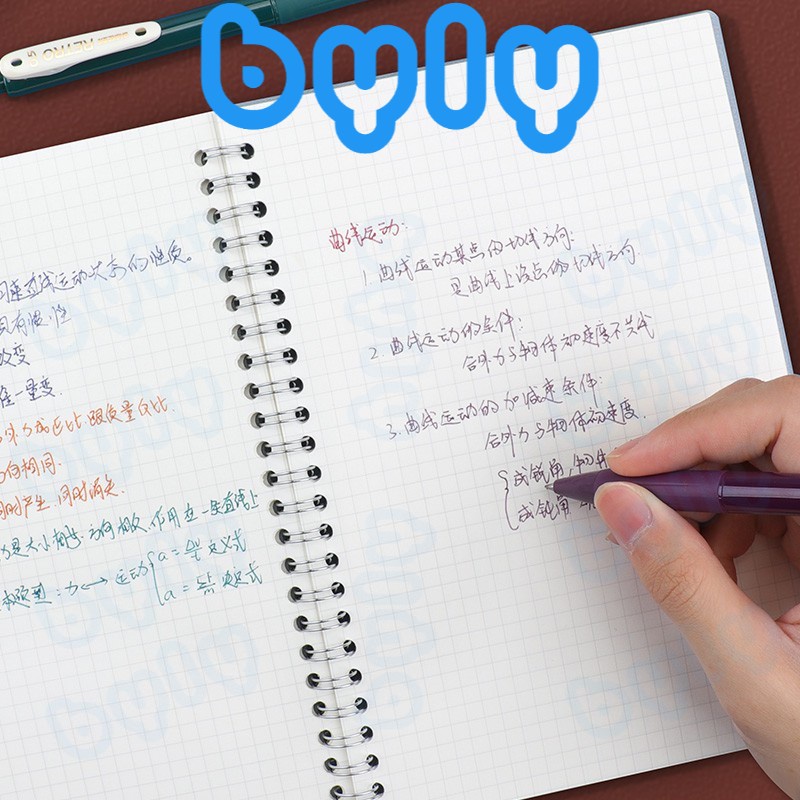 byly
RETRO
匀速直线运动状态的性质。
具有惯性
改变
唯一量变
外力成正比 跟质量反比.
方向相同.
同时产生,同时消失.
力是大小相等.方向相反.作用在一条直线上
题型:力↔运动 { a = Δv/t 定义式
a = F/m 决定式
曲线运动:
1. 曲线运动某点的切线方向:
是曲线上该点的切线方向.
2. 曲线运动的条件:
合外力与物体初速度不共线
3. 曲线运动的加减速条件:
合外力与物体初速度.
{ 成锐角,物体
成钝角